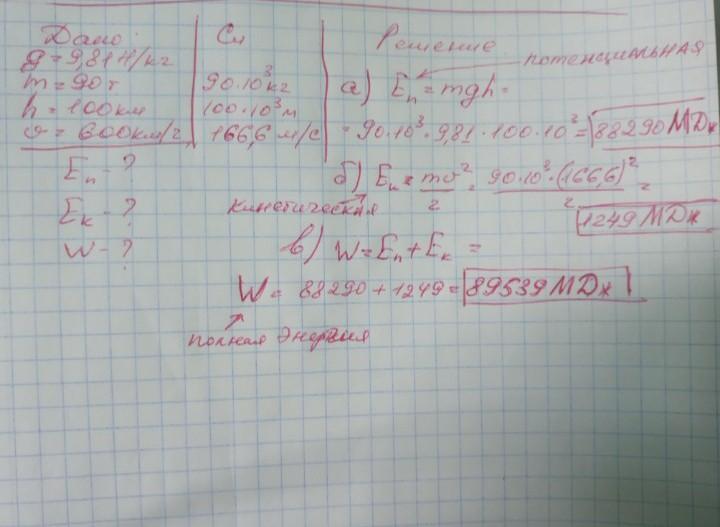 Дано:
g = 9,81 Н/кг
m = 90 т
h = 100 км
v = 600 км/г
Eп - ?
Eк - ?
W - ?
Си
90·10³ кг
100·10³ м
166,6 м/с
Решение
потенциальная
а) Eп = mgh =
= 90·10³·9,81·100·10³ = 88290 МДж
б) Eк = mv²/2 = 90·10³·(166,6)²/2 =
1249 МДж
кинетическая
в) W = Eп + Eк =
W = 88290 + 1249 = 89539 МДж
полная энергия